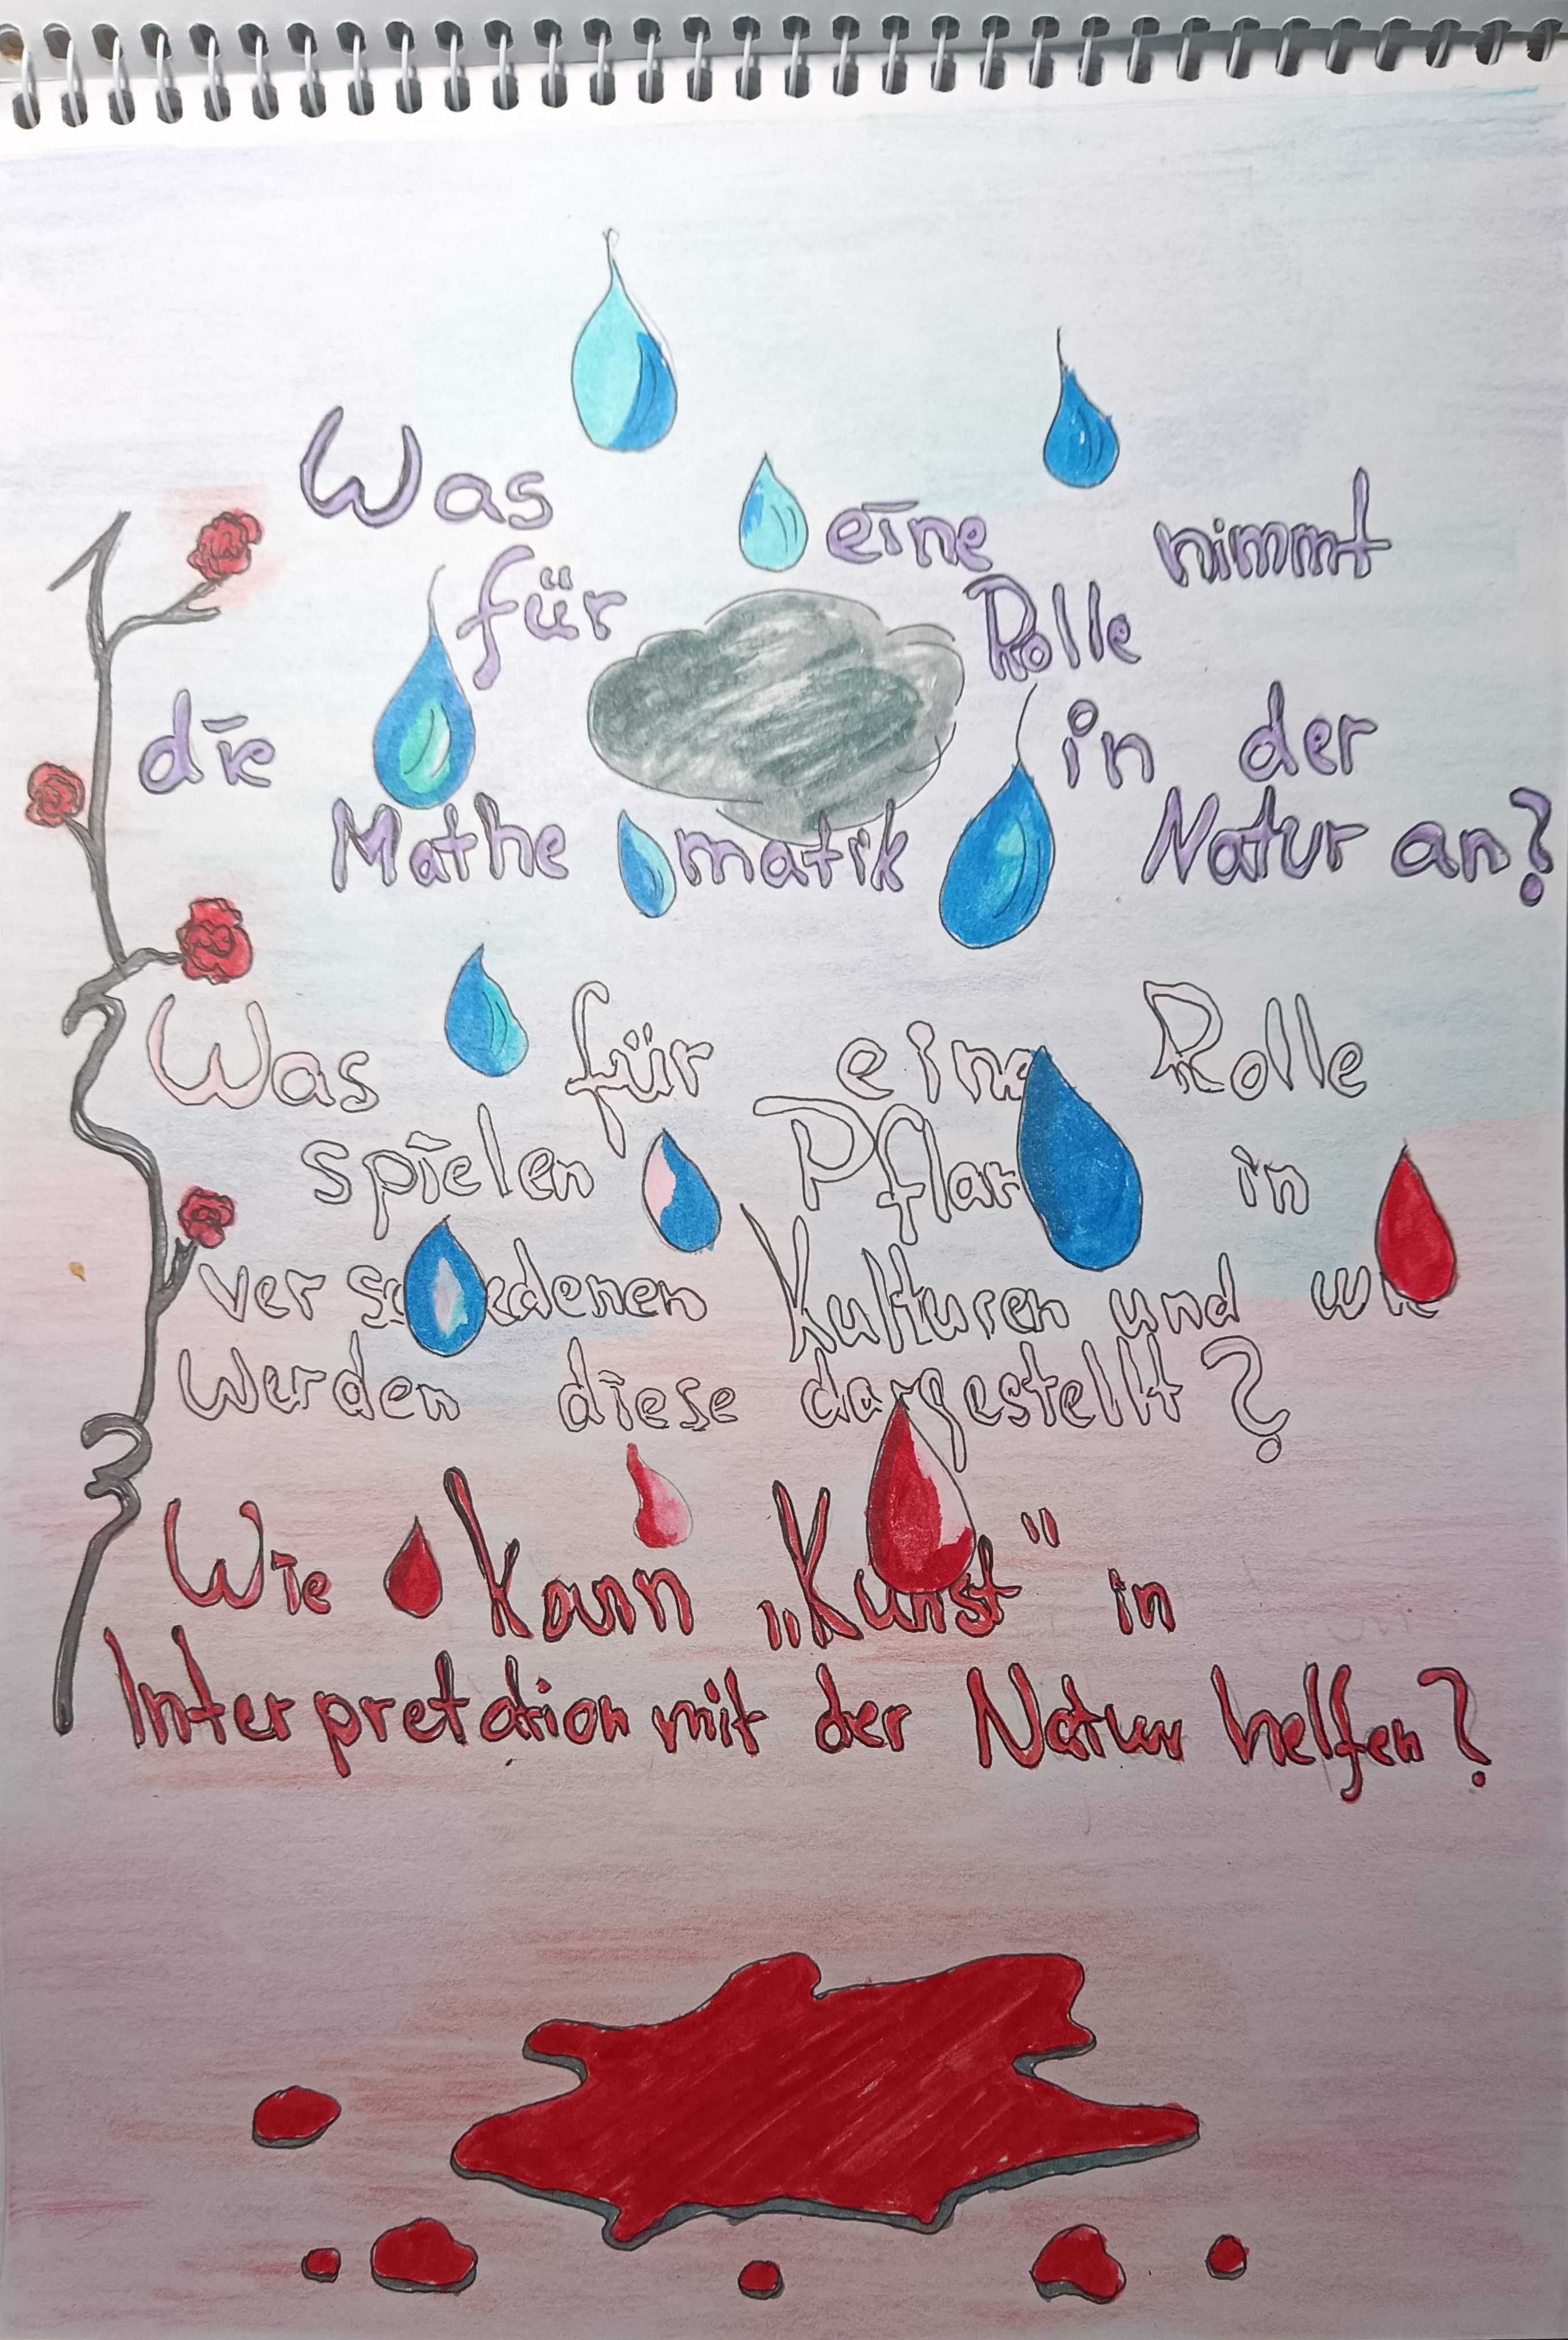 1
Was eine nimmt
für Rolle
die in der
Mathematik Natur an?
2
Was für eine Rolle
spielen in
verschiedenen Kulturen und wie
werden diese dargestellt?
3
Wie kann „Kunst" in
Interpretation mit der Natur helfen?